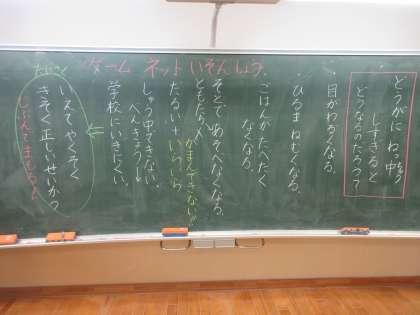 ゲーム ネット いぞんしょう
どうがに ねっ中
しすぎると
どうなるのだろう?
・目がわるくなる。
・ひるま ねむくなる。
・ごはんが たべたく
なくなる。
・そとで あそべなくなる。
ともだち
がまんできない
だるい + いらいら
しゅう中できない。
べんきょう
学校にいきにくい。
いえで やくそく
きそく正しいせいかつ
じぶんで まもろう